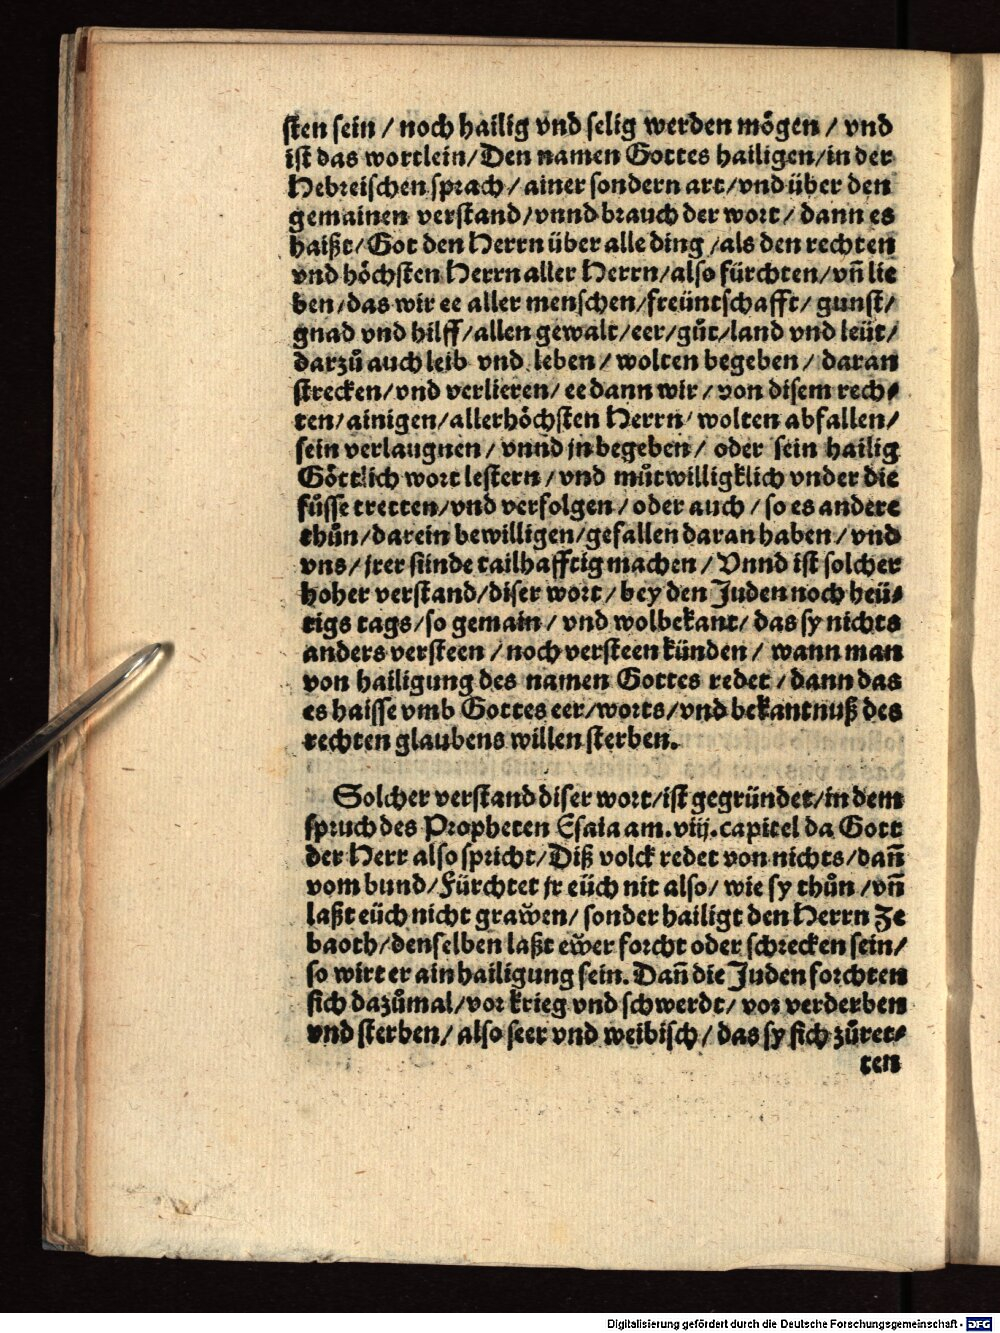 sten sein / noch hailig vnd selig werden mögen / vnd
ist das wortlein / Den namen Gottes hailigen / in der
Hebreischen sprach / ainer sondern art / vnd über den
gemainen verstand / vnnd brauch der wort / dann es
haißt / Got den Herrn über alle ding / als den rechten
vnd höchsten Herrn aller Herrn / also fürchten / vñ lie
ben / das wir ee aller menschen / freüntschafft / gunst /
gnad vnd hilff / allen gewalt / eer / gůt / land vnd leüt /
darzů auch leib vnd leben / wolten begeben / daran
strecken / vnd verlieren / ee dann wir / von disem rech⸗
ten / ainigen / allerhöchsten Herrn / wolten abfallen /
sein verlaugnen / vnnd jn begeben / oder sein hailig
Göttlich wort lestern / vnd můtwilligklich vnder die
füsse tretten / vnd verfolgen / oder auch / so es andere
thůn / darein bewilligen / gefallen daran haben / vnd
vns / jrer sünde tailhafftig machen / Vnnd ist solcher
hoher verstand / diser wort / bey den Juden noch heü⸗
tigs tags / so gemain / vnd wolbekant / das sy nichts
anders versteen / noch versteen künden / wann man
von hailigung des namen Gottes redet / dann das
es haisse vmb Gottes eer / worts / vnd bekantnuß des
rechten glaubens willen sterben.
Solcher verstand diser wort / ist gegründet / in dem
spruch des Propheten Esaia am .viij. capitel da Gott
der Herr also spricht / Diß volck redet von nichts / dañ
vom bund / Fürchtet jr eüch nit also / wie sy thůn / vñ
laßt eüch nicht grawen / sonder hailigt den Herrn Ze
baoth / denselben laßt ewer forcht oder schrecken sein /
so wirt er ain hailigung sein. Dañ die Juden forchten
sich dazůmal / vor krieg vnd schwerdt / vor verderben
vnd sterben / also seer vnd weibisch / das sy sich zůret⸗
ten
Digitalisierung gefördert durch die Deutsche Forschungsgemeinschaft - DFG